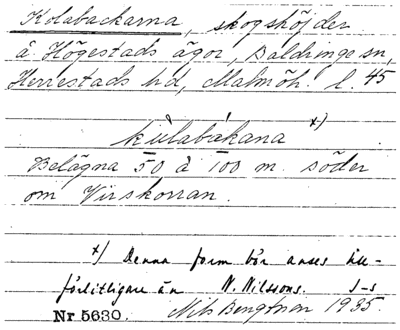 Kolabackarna, skogshöjder
å Högestads ägor, Baldringe sn,
Herrestads hd, Malmöh. l. 45
kùlabákana x)
Belägna 50 à 100 m. söder
om Virskorran.
x) Denna form bör anses till-
förlitligare än N. Nilssons. J-s
Nr. 5630. Nils Bengtsson 1935.